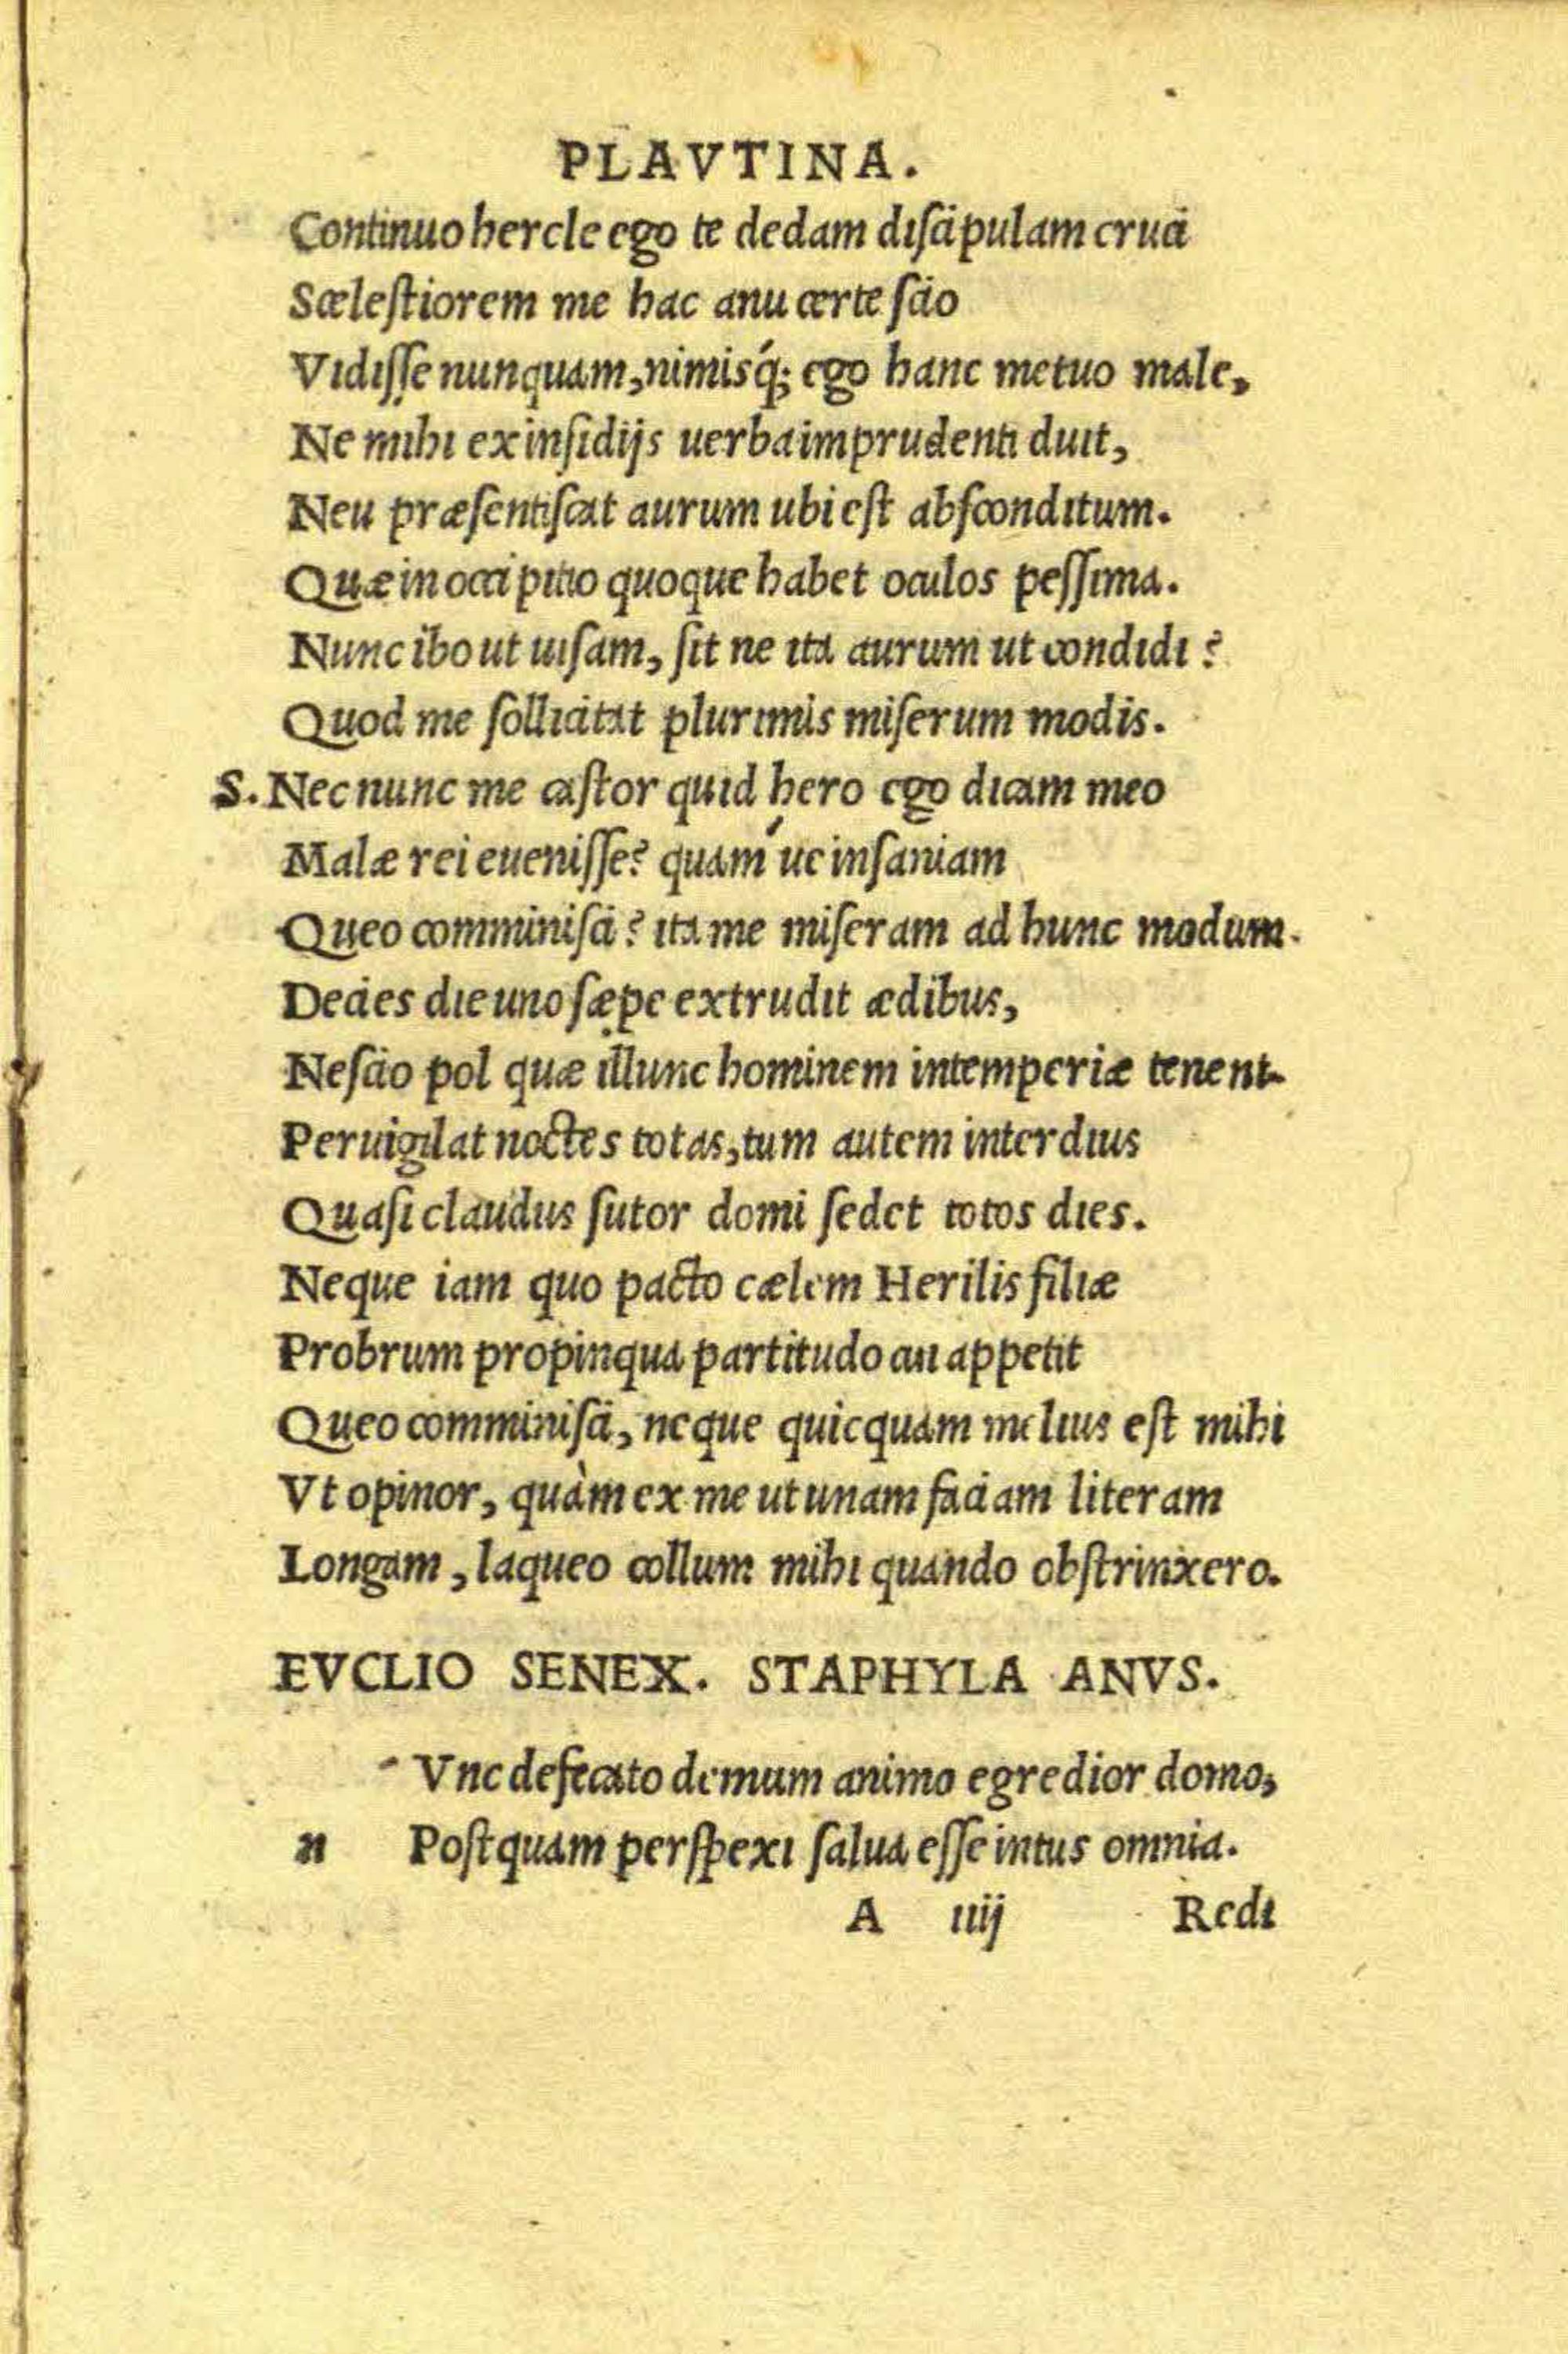 PLAVTINA.
Continuo hercle ego te dedam discipulam cruci
Scelestiorem me hac anu certe scio
Vidisse nunquam, nimisq́; ego hanc metuo male,
Ne mihi ex insidijs uerba imprudenti duit,
Neu præsentiscat aurum ubi est absconditum.
Quæ in occipitio quoque habet oculos pessima.
Nunc ibo ut uisam, sit ne ita aurum ut condidi?
Quod me sollicitat plurimis miserum modis.
S. Nec nunc me castor quid hero ego dicam meo
Malæ rei euenisse? quam´ue insaniam
Queo comminisci? ita me miseram ad hunc modum.
Decies die uno sæpe extrudit ædibus,
Nescio pol quæ illunc hominem intemperiæ tenent.
Peruigilat noctes totas, tum autem interdius
Quasi claudus sutor domi sedet totos dies.
Neque iam quo pacto cælem Herilis filiæ
Probrum propinqua partitudo cui appetit
Queo comminisci, neque quicquam melius est mihi
Vt opinor, quàm ex me ut unam faciam literam
Longam, laqueo collum mihi quando obstrinxero.
EVCLIO SENEX. STAPHYLA ANVS.
Vnc defecato demum animo egredior domo,
n Postquam perspexi salua esse intus omnia.
A iiij Redi